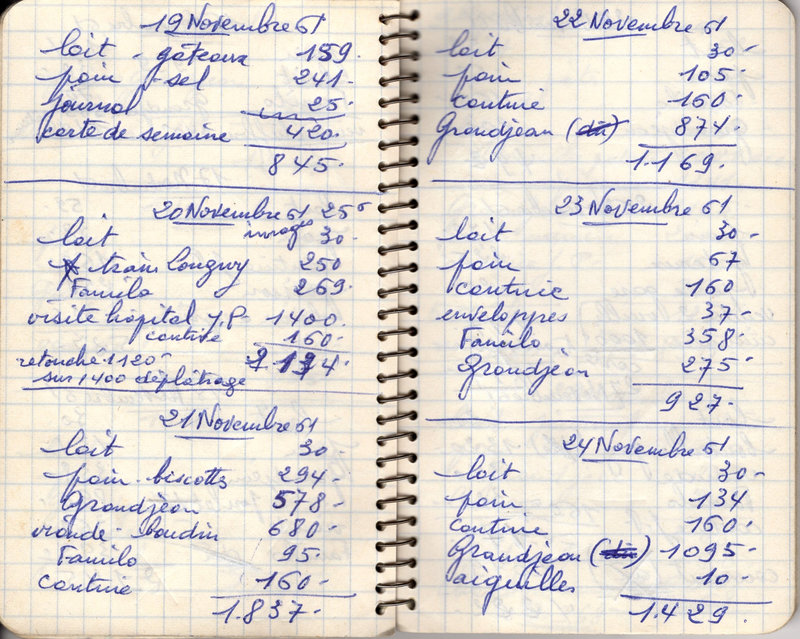 19 Novembre 61
lait - gâteaux 159.
pain - sel 241-
journal 25.
carte de semaine 420.
845.
20 Novembre 61 25-
images
lait 30-
train Longwy 250
Familo 269.
visite hôpital J.P- 1400.
cantine 160.
retouché 1120-
2134.
sur 1400 déplâtrage
21 Novembre 61
lait 30.
pain - biscottes 294-
Grandjean 578-
viande - boudin 680-
Familo 95.
cantine 160-
1.837.
22 Novembre 61
lait 30-
pain 105-
cantine 160.
Grandjean (dû) 874.
1.169.
23 Novembre 61
lait 30-
pain 67
cantine 160
enveloppes 37-
Familo 358.
Grandjean 275-
927.
24 Novembre 61
lait 30-
pain 134
cantine 160.
Grandjean (dû) 1095-
aiguilles 10-
1.429.